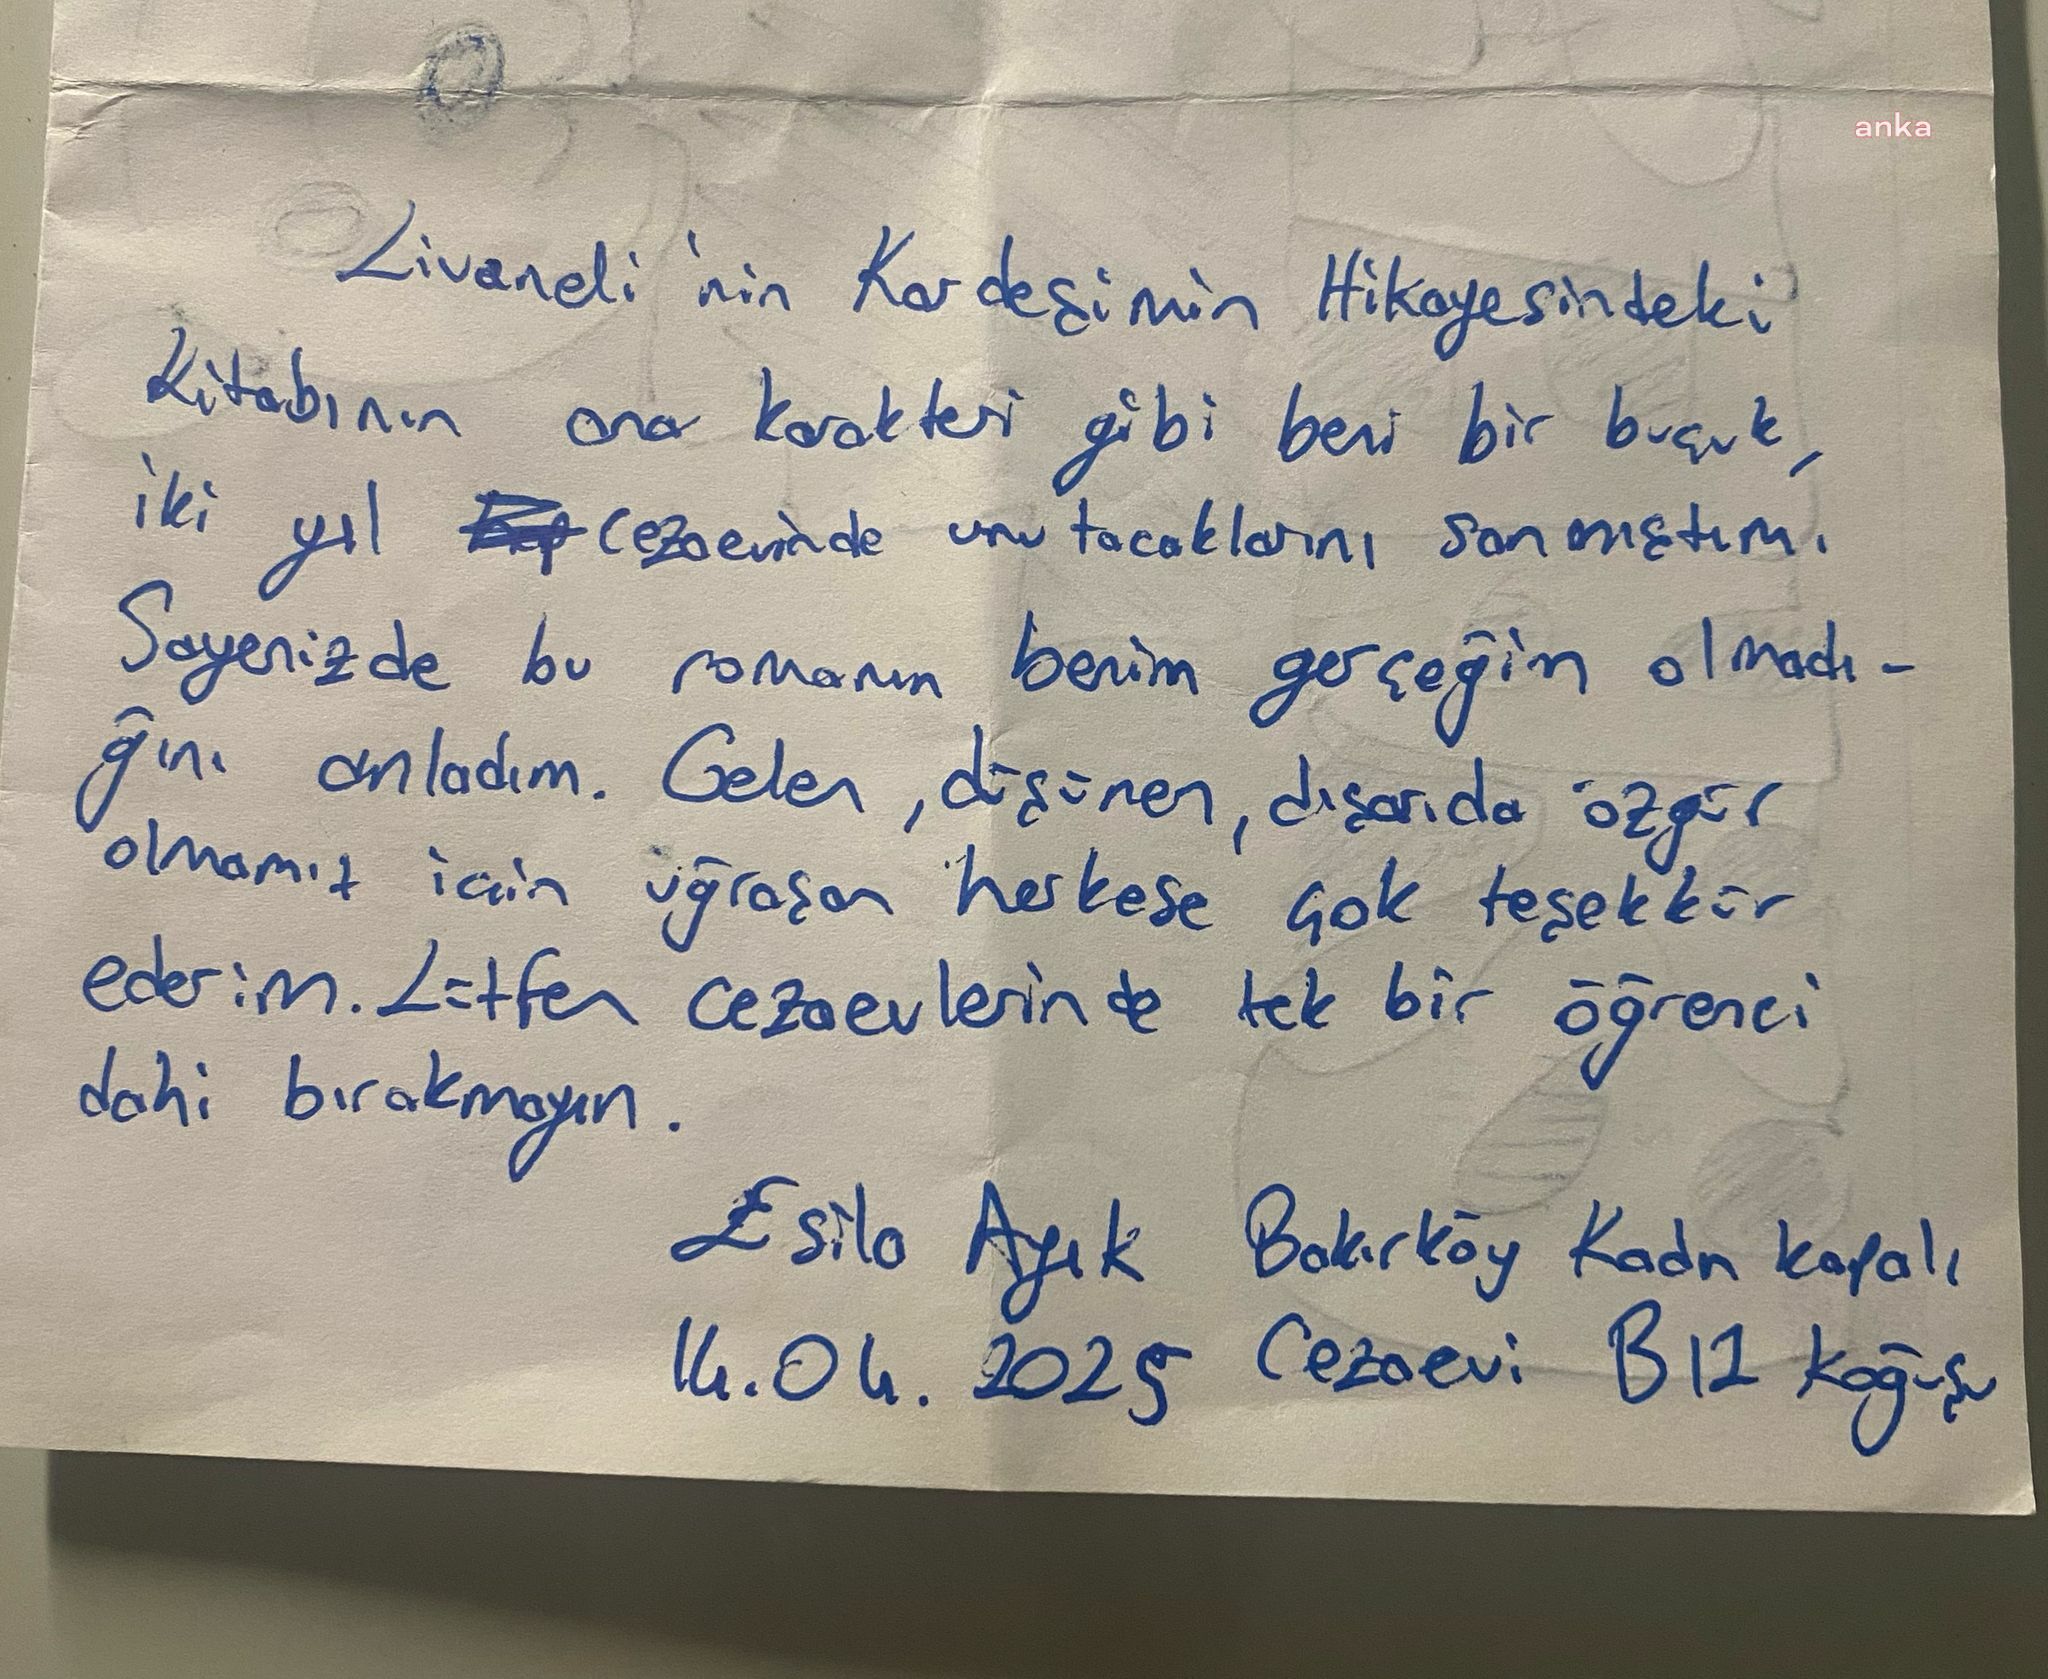 anka
Livaneli'nin Kardeşimin Hikayesindeki
Kitabının ana karakteri gibi beni bir buçuk,
iki yıl cezaevinde unutacaklarını sanmıştım.
Sayenizde bu romanın benim gerçeğim olmadı-
ğını anladım. Gelen, düşünen, dışarıda özgür
olmamız için uğraşan herkese çok teşekkür
ederim. Lütfen cezaevlerinde tek bir öğrenci
dahi bırakmayın.
Esila Ayık Bakırköy Kadın kapalı
14.04.2025 Cezaevi B12 koğuşu